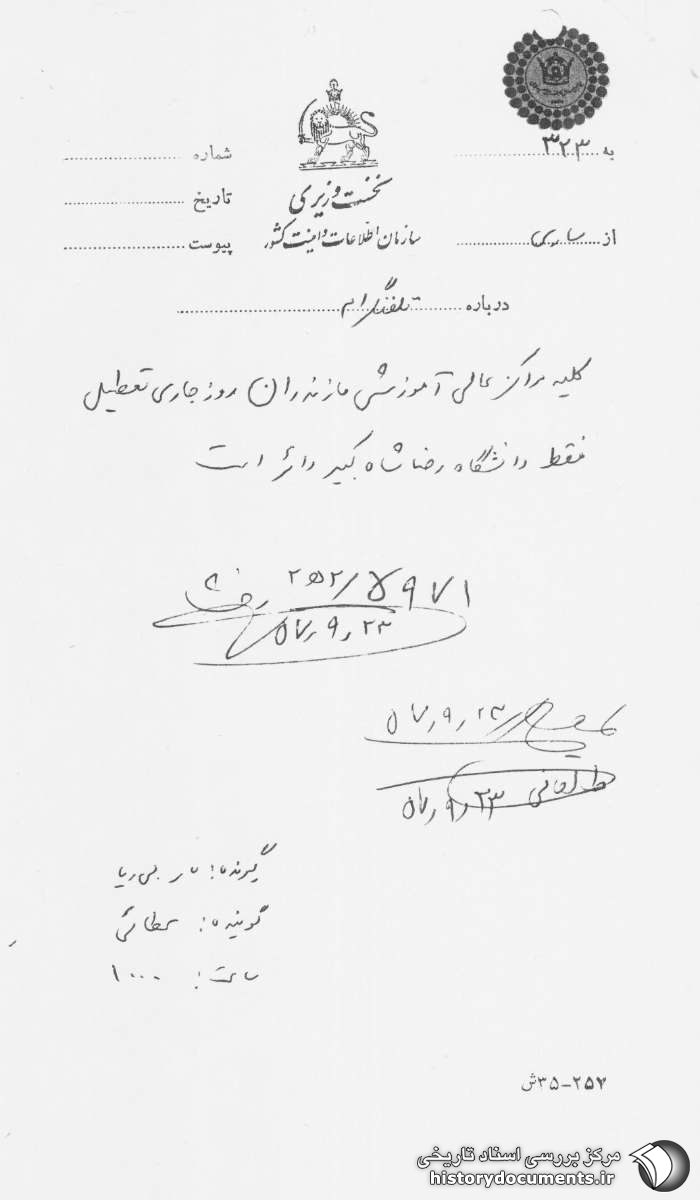 به ۳۲۳
شماره
نخست وزیری
تاریخ
سازمان اطلاعات و امنیت کشور
از ساری
پیوست
درباره تلفنگرام
کلیه مراکز عالی آموزشی مازندران روز جاری تعطیل
فقط دانشگاه رضا شاه کبیر دائر است
۲۵۲/۵۹۷۱
۵۷٫۹٫۲۳
۵۷٫۹٫۲۳
طالقانی ۵۷٫۹٫۲۳
گیرنده:
گوینده: عطائی
ساعت: ۱۰۰۰
۲۵۷-۳۵ش
مرکز بررسی اسناد تاریخی
historydocuments.ir